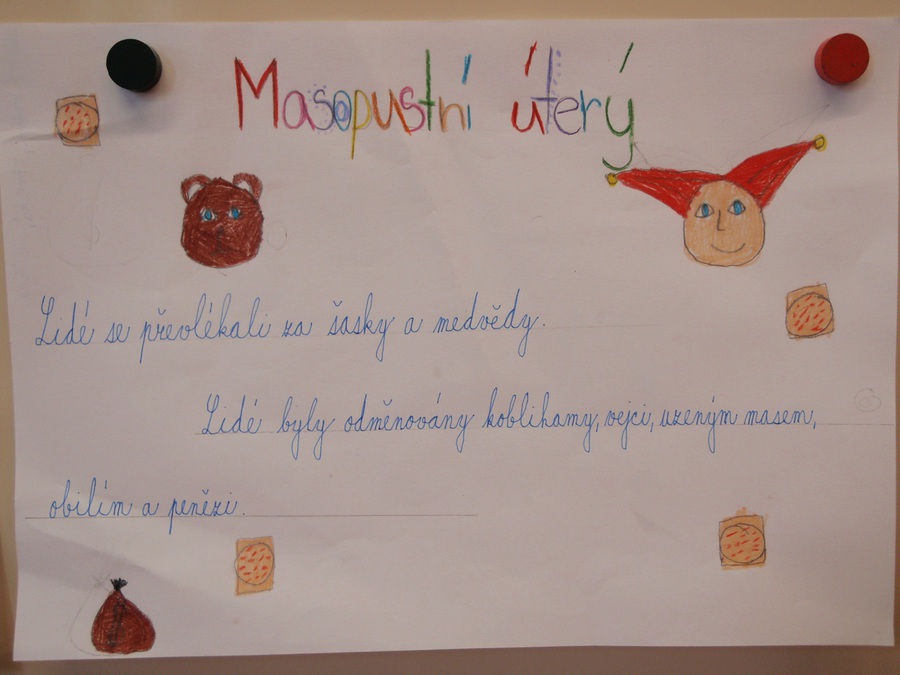 Masopustní úterý
Lidé se převlékali za šasky a medvědy.
Lidé byly odměnovány koblihamy, vejci, uzeným masem,
obilím a penězi.